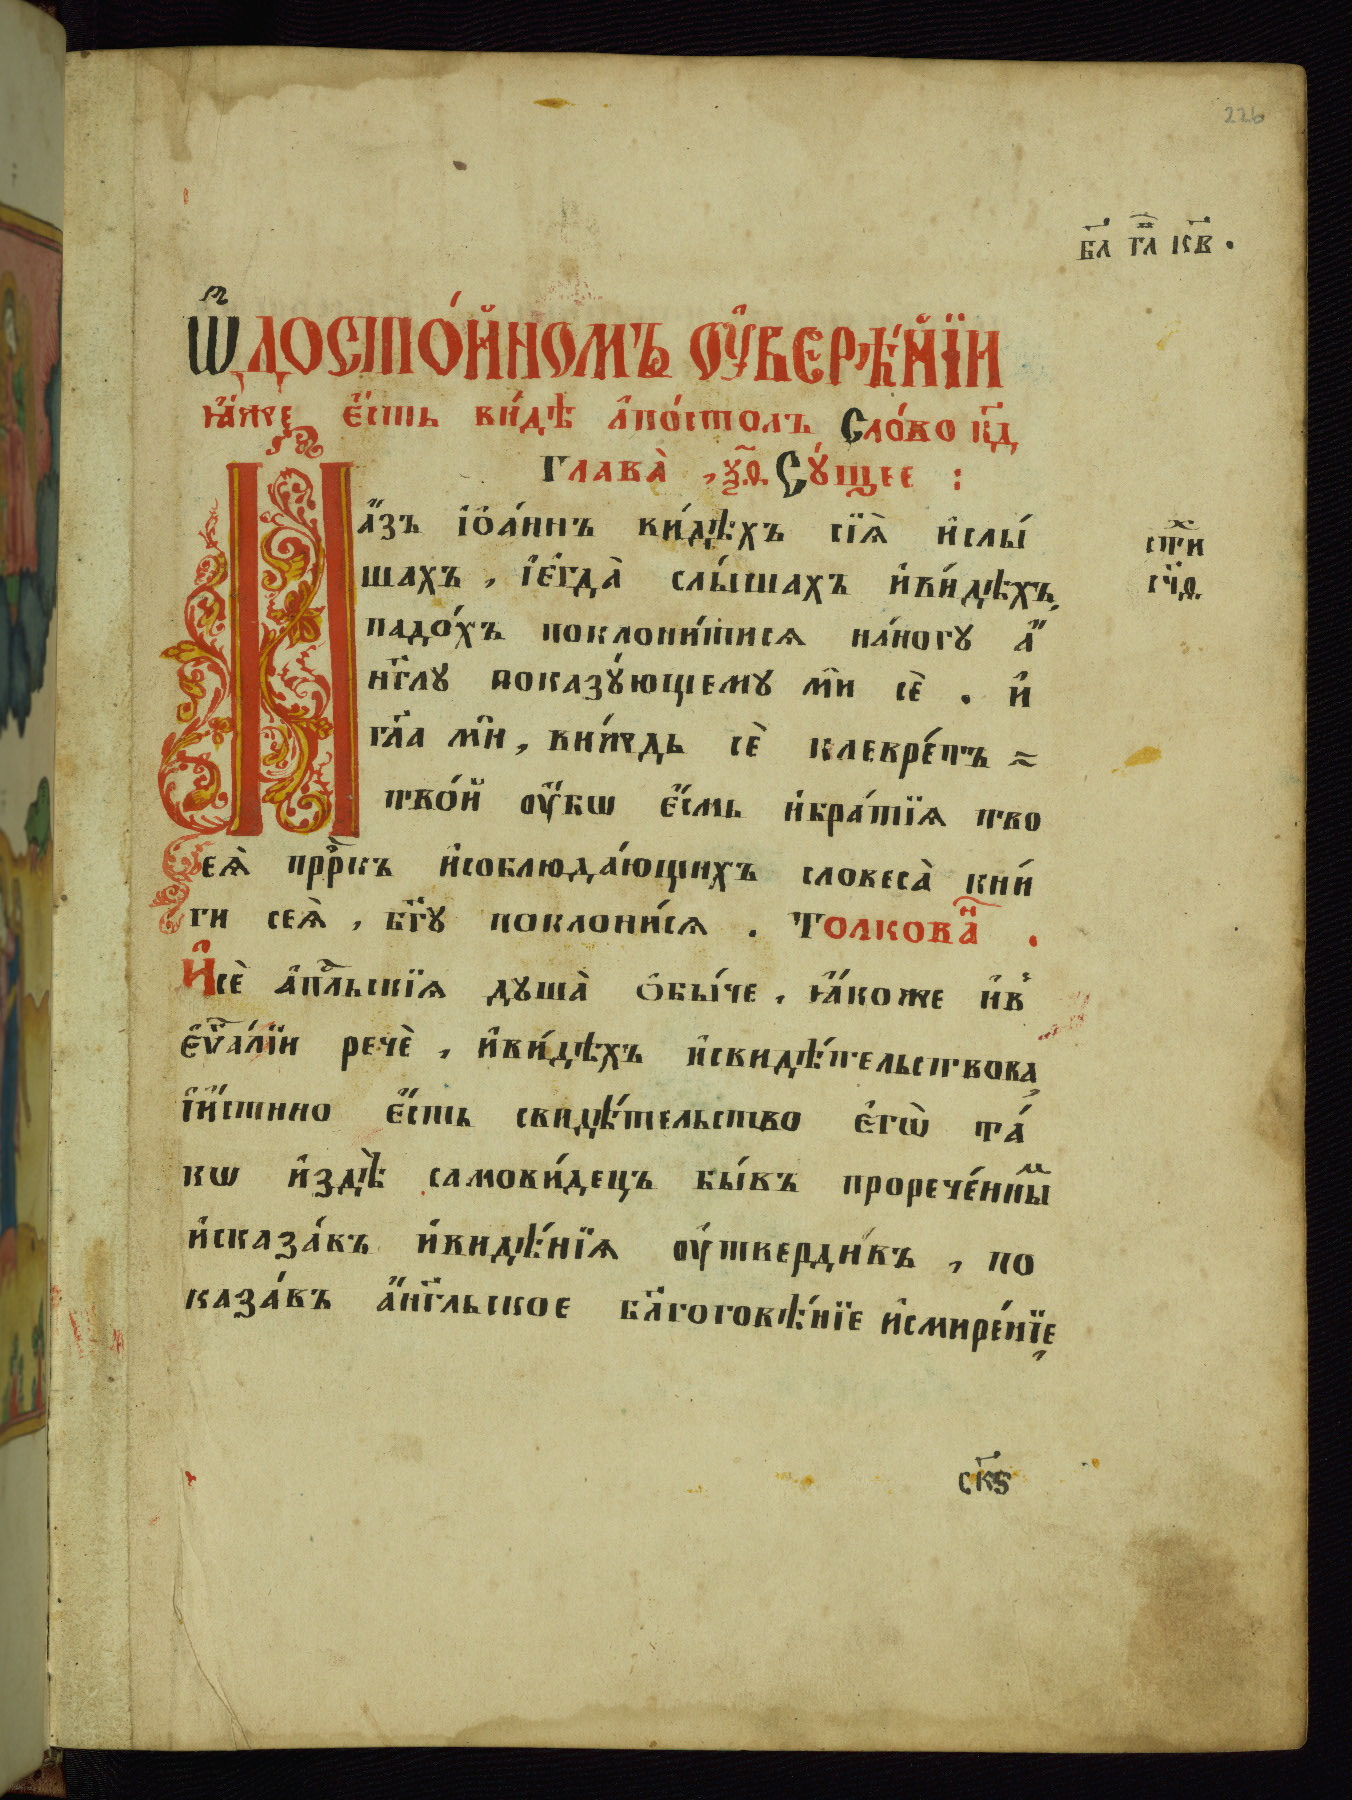 226
бл҃ гл҃ кв҃ .
Ѿ досто́йномъ ᲂувере́нїи
ꙗ҆́же є҆́сть ви́дѣ а҆по́столъ Сло́во кд҃
Глава̀ , ѯ҃ѳ Су́щее :
И
а҆́зъ і҆ѡа́ннъ ви́дѣхъ сїѧ̀ и҆слы́
шахъ , і҆єгда̀ слы́шахъ и҆ви́дѣхъ,
падо́хъ поклони́тисѧ на́ногу а҆́
нг҃лу показу́ющему ми̑ сѐ . и҆
гл҃а ми̑ , ви́ждь сѐ клевре́тъ
тво́й ᲂу҆́бѡ є҆́смь и҆бра́тїѧ тво
еѧ̀ прⷪ҇ркъ и҆соблюда́ющихъ словеса̀ кни́
ги сеѧ̀ , бг҃у поклони́сѧ . Толкова́н .
И҆сѐ а҆пⷭ҇льскїѧ душа̀ ѻ҆бы́че , ꙗ҆́коже и҆в
є҆ѵⷢ҇а́лїи речѐ , и҆ви́дѣхъ и҆свидѣ́тельствова,
і҆и́стинно є҆́сть свидѣ́тельство є҆гѡ̀ та́
кѡ и҆здѣ̀ самови́децъ бы́въ прорече́нныⷨ
и҆сказа́въ и҆видѣ́нїѧ ᲂу҆твердивъ , по
каза́въ а҆́нг҃льское бл҃гоговѣ́нїе и҆смире́нїе,
стⷯи
сч҃ѳ
ск҃ѕ